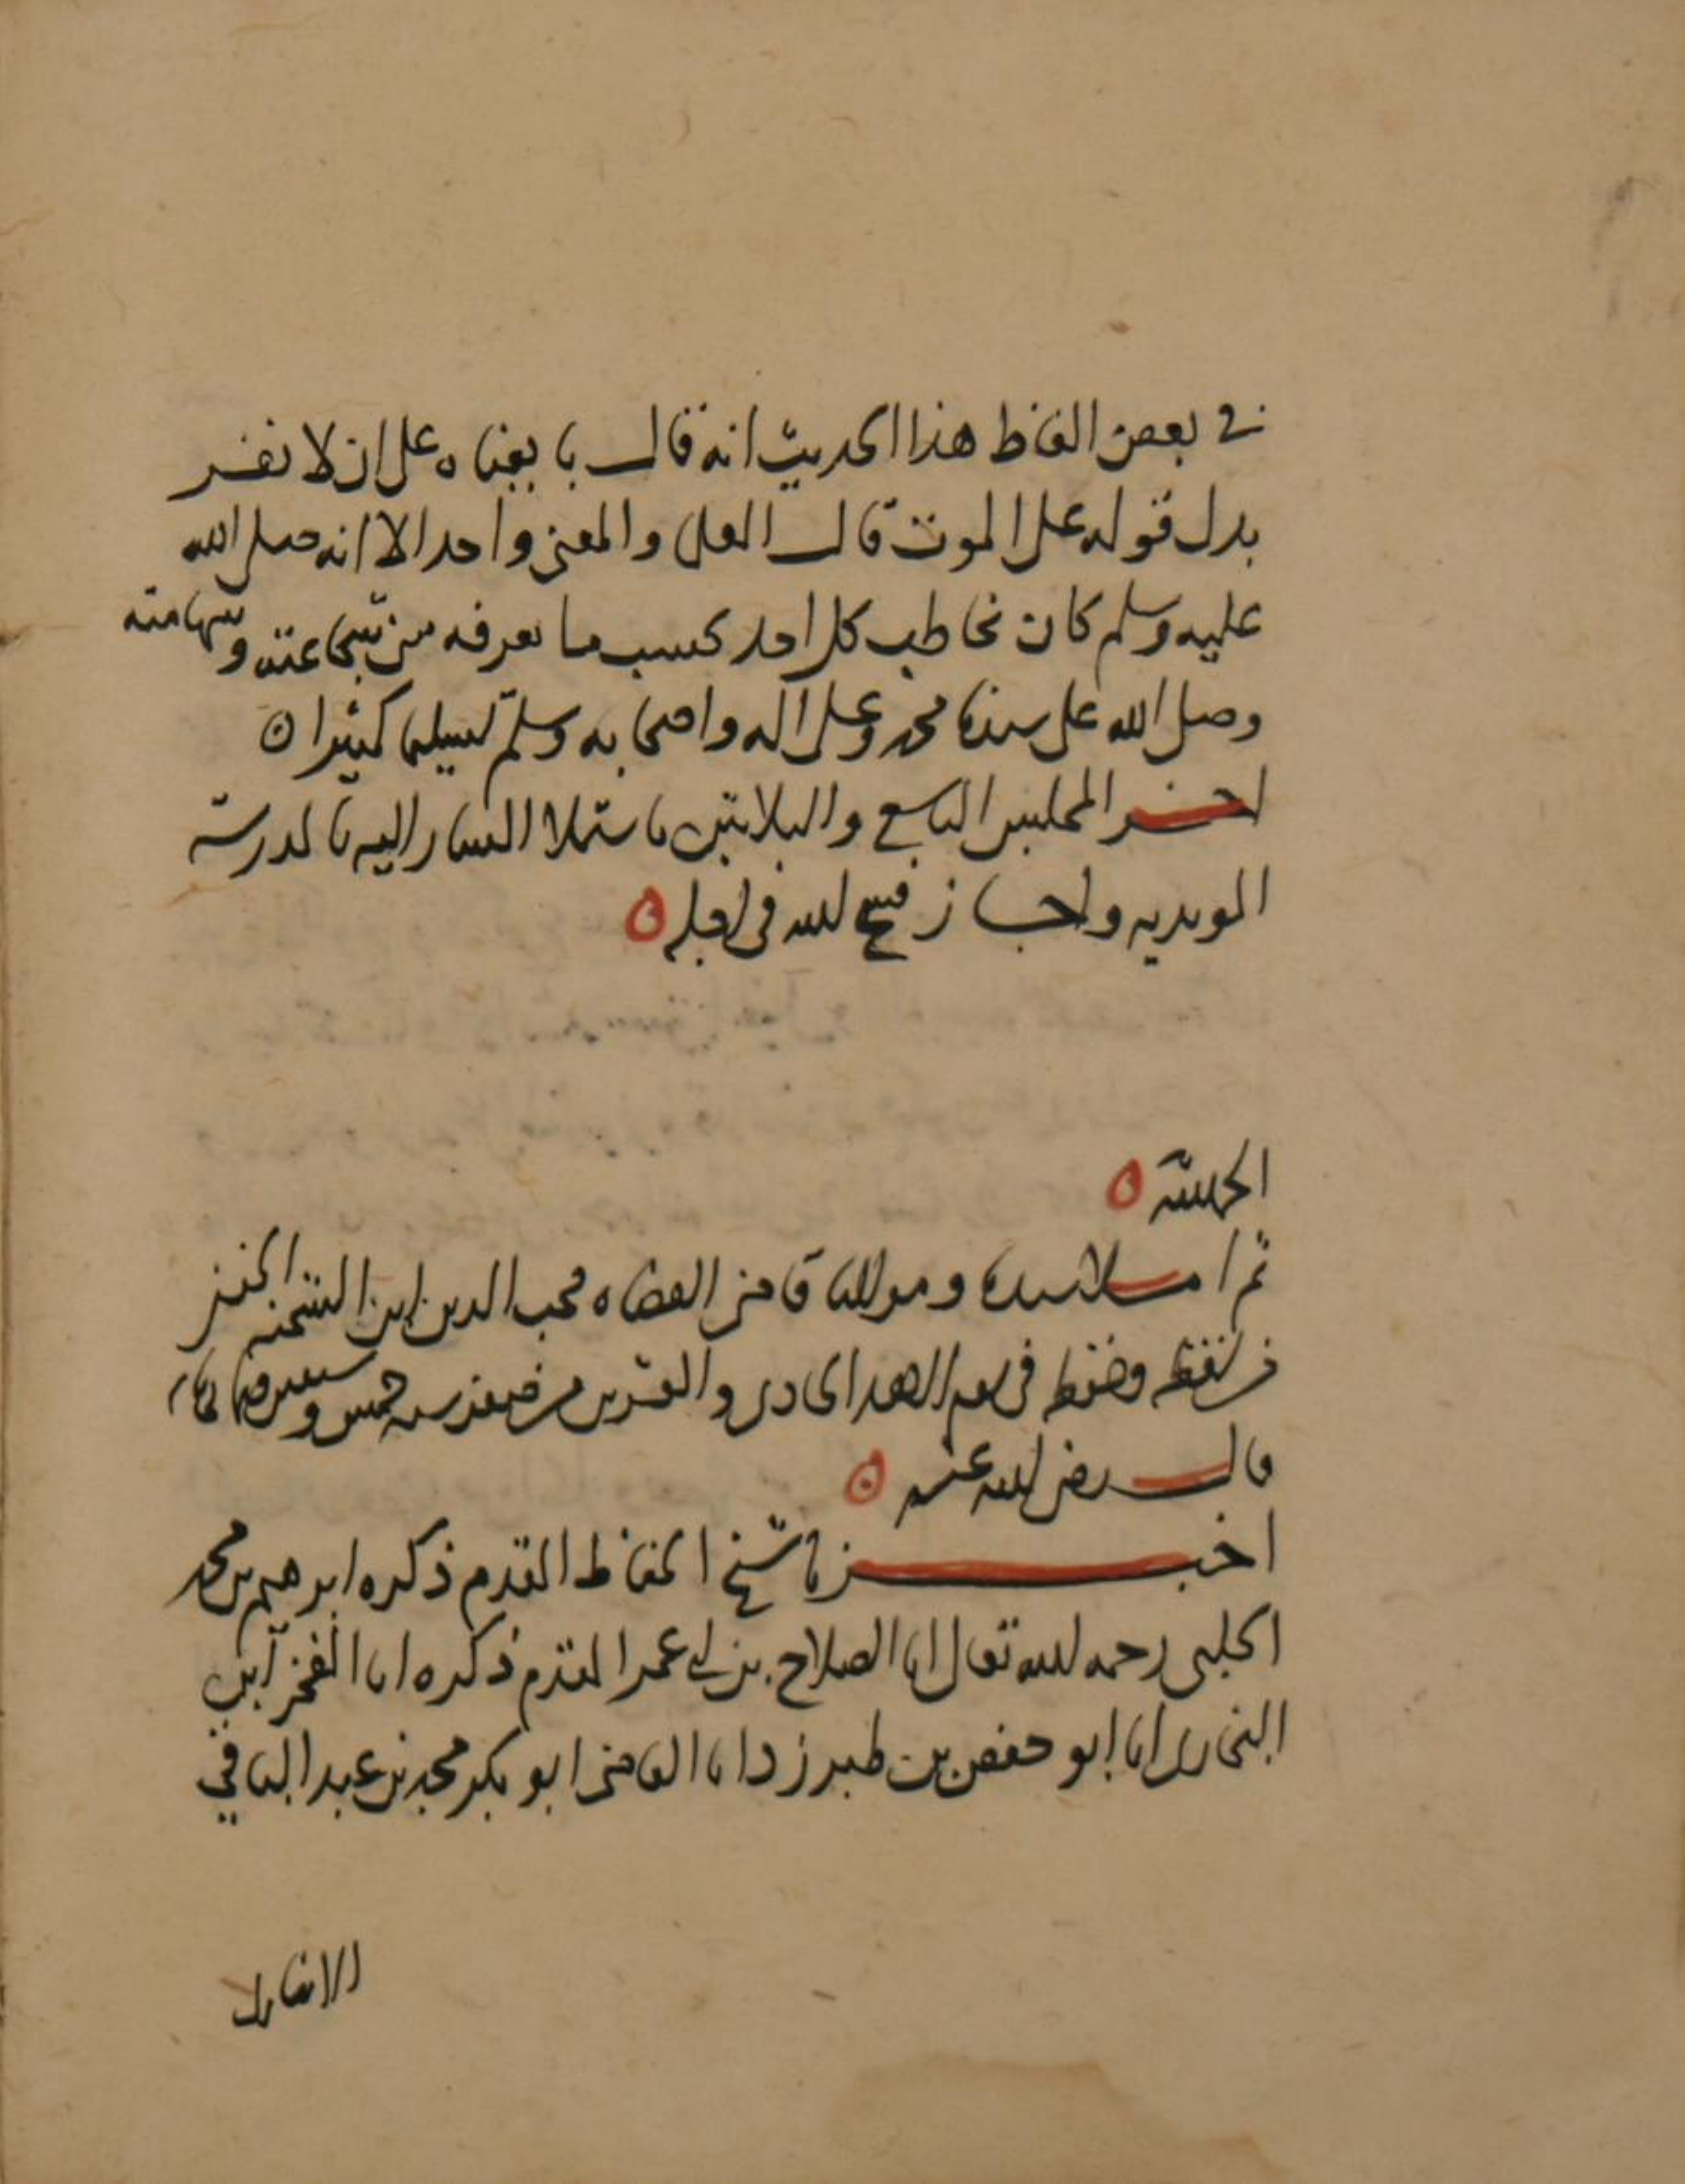 في بعض الفاظ هذا الحديث انه قال بايعناه على ان لا نفر
بدل قوله على الموت قال العلما والمعنى واحد الا انه صلى الله
عليه وسلم كان يخاطب كل احد بحسب ما يعرفه من شجاعته وشهامته
وصلى الله على سيدنا محمد وعلى اله واصحابه وسلم تسليما كثيرا
اخر المجلس التاسع والثلاثين باستملا المشار اليه بالمدرسة
المويديه واجاز فسح الله في اجله
الحمد لله
ثم املا سيدنا ومولانا قاضى القضاه محب الدين ابن الشحنه الحنفى
من لفظه وحفظه في يوم الاحد الحادى والعشرين من صفر سنه خمس وسبعين وثمانمايه
قال رضى الله عنه
اخبرنا شيخ الحفاظ المقدم ذكره ابرهيم بن محمد
الحلبى رحمه الله تعالى انا الصلاح بن ابى عمر المقدم ذكره انا الفخر ابن
البخارى انا ابو حفص بن طبرزد انا القاضى ابو بكر محمد بن عبد الباقي
الانصارى